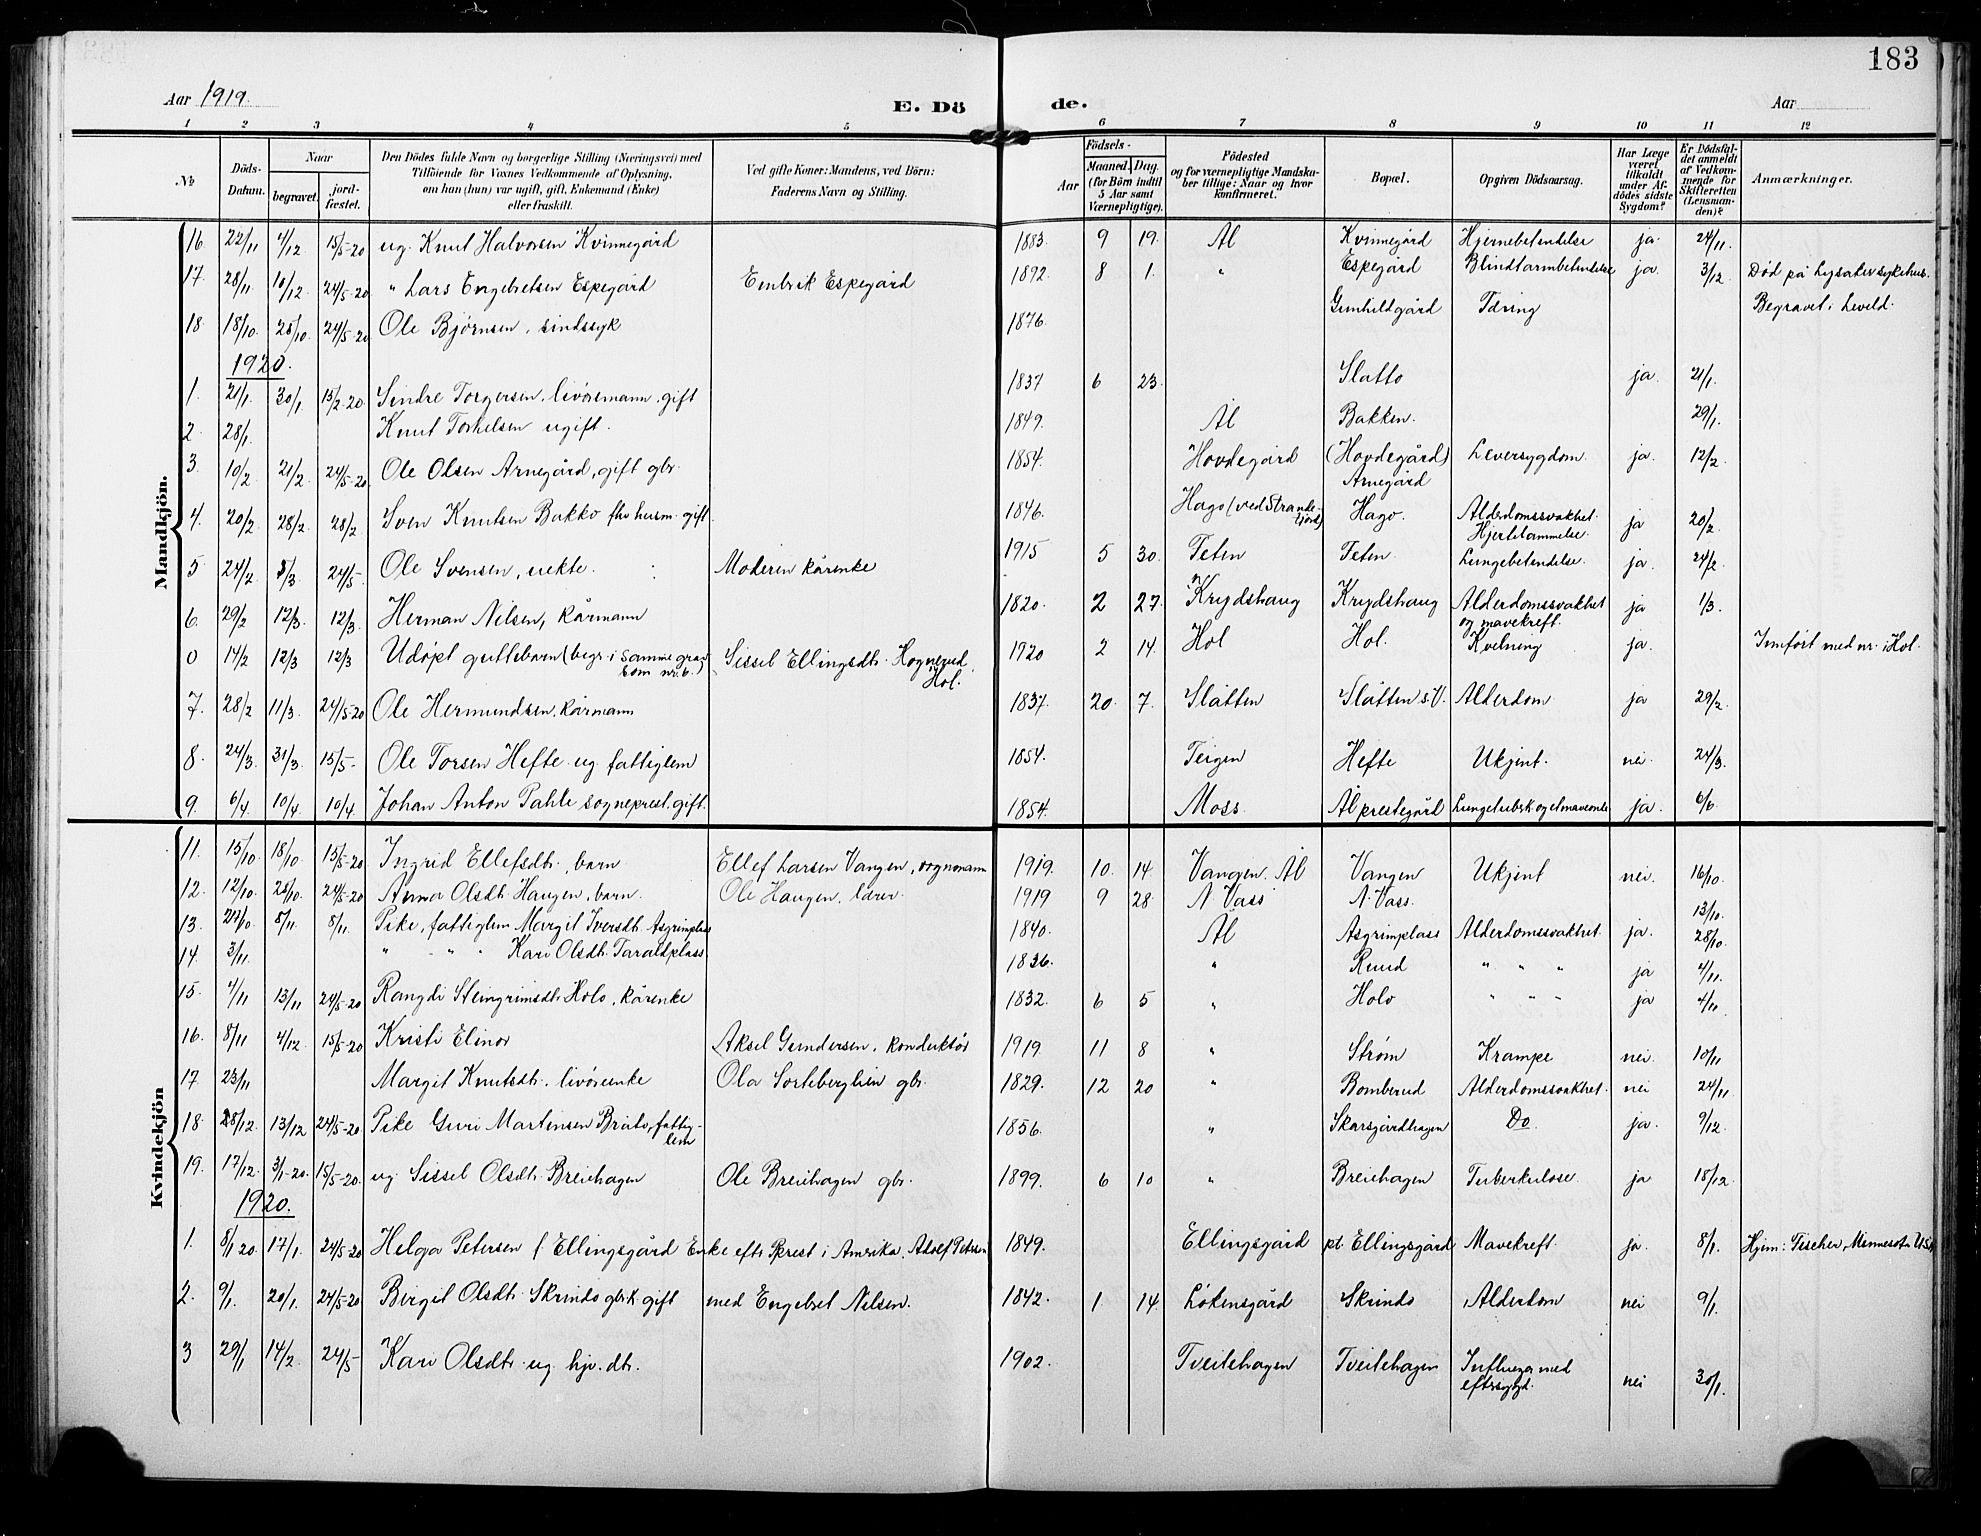 183
Aar 1919.
E. Dö de.
Aar
1 2 3 4 5 6 7 8 9 10 11 12
№
Döds-Datum.
Naar
begravet.
jord-fæstet.
Den Dödes fulde Navn og borgerlige Stilling (Næringsvei) med
Tilföiende for Voxnes Vedkommende af Oplysning,
om han (hun) var ugift, gift, Enkemand (Enke)
eller fraskilt.
Ved gifte Koner: Mandens, ved Börn:
Faderens Navn og Stilling.
Födsels-
Aar
Maaned.
Dag.
(for Börn indtil
5 Aar samt
Værnepligtige).
Födested
og for værnepligtige Mandska-
ber tillige: Naar og hvor
konfirmeret.
Bopæl.
Opgiven Dödsaarsag.
Har Læge
været
tilkaldt
under Af-
dödes sidste
Sygdom?
Er Dödsfal-
det anmeldt
af Vedkom-
mende for
Skifteretten
(Lensman-
den)?
Anmærkninger.
Mandkjön.
16. 22/11 4/12 15/5-20 ug. Knut Halvorsen Kvinnegård 1883. 9 19. Ål Kvinnegård Hjernebetendelse ja. 24/11.
17. 28/11. 10/12. 24/5-20 " Lars Engebretsen Espegård Embrik Espegård 1892. 8 1. " Espegård Blindtarmbetendelse ja. 3/12. Død på Lysaker sykehus.
Begravet i Leveld.
18. 18/10. 25/10. 24/5-20 Ole Bjørnsen, sindssyk 1876. Gunhildgård Tæring
1920.
1. 21/1. 30/1 13/2-20 Sindre Torgersen, livøremann, gift 1837 6 23. Slatto ja. 21/1.
2. 28/1. Knut Torkelsen ugift. 1849. Ål Bakken. 29/1.
3. 10/2 21/2 24/5-20. Ole Olsen Arnegård, gift gbr. 1854. Hovdegård (Hovdegård) Leversygdom. ja. 12/2
Arnegård
4. 20/2 28/2 28/2 Sven Knutsen Bakko fhv husm. gift. 1846. Hago (ved Strande-fjord) Hago. Alderdomssvakhet. ja 20/2.
Hjertelammelse.
5 24/2 8/3 24/5. Ole Svensen, uekte. Moderen kårenke 1915 5 30. Teten Teten. Lungebetendelse. ja. 24/2.
6. 29/2 12/3. 12/3. Herman Nilsen, kårmann 1820. 2 27. Krydshaug Krydshaug Alderdomssvakhet ja 1/3.
og mavekreft.
0 14/2 12/3 12/3 Udøpt guttebarn (begr. i samme grav Sissel Ellingsdtr. Hognerud 1920 2 14. Hol Hol. Kvelning ja. Innført med nr. i Hol.
som nr. 6.) Hol.
7. 28/2 11/3. 24/5-20 Ole Hermundsen, kårmann 1837. 20. 7. Slåtten Slåtten s.V. Alderdom ja 29/2.
8. 24/3. 31/3. 15/5- Ole Torsen Hefte ug. fattiglem 1854. Teigen Hefte Ukjent. nei. 24/3.
9. 6/4 10/4 10/4 Johan Anton Pahle sogneprest. gift. 1854. Moss. Ål prestegård ja. 6/6
Kvindekjön
11. 15/10. 18/10. 15/5-20 Ingrid Ellefsdtr., barn Ellef Larsen Vangen, vognmann 1919. 10. 14. Vangen Ål Vangen Ukjent nei. 16/10.
12. 12/10. 25/10. 24/5-20 Anna Olsdtr. Haugen, barn. Ole Haugen, lærer. 1919 9 28. N Vass N. Vass. 13/10.
13. 27/10 8/11. 8/11. Pike, fattiglem Margit Iversdtr. Asgrimplass 1840. Ål Asgrimplass Alderdomssvakhet. ja. 28/10.
14. 3/11. " " " Kari Olsdtr. Taraldplass. 1836. " Ruud " " " ja 4/11.
15. 4/11 13/11 24/5-20 Rangdi Steingrimsdtr. Holo, kårenke 1832. 6 5 " Holo " " " ja 4/11
16. 8/11 4/12 15/5-20 Kristi Elinor Aksel Gundersen, konduktør 1919. 11 8 " Strøm Krampe nei. 10/11
17 23/11 Margit Knutsdtr., livøreenke Ola Sorteberglien gbr. 1829. 12 20 " Bomberud Alderdomssvakhet. nei 24/11
18. 28/12. 13/12 24/5-20 Pike Guri Martinsen Bråto, fattig-lem 1856. " Skarsgårdhagen Do ja. 9/12.
19. 17/12. 3/1-20. 15/5-20. ug. Sissel Olsdtr. Breiehagen Ole Breiehagen gbr. 1899. 6 10 " Breiehagen Tuberkulose. ja 18/12.
1920.
1. 8/1 20. 17/1. 24/5-20 Helga Petersen f. Ellingsgård Enke eftr. Prest i Amerika, Adolf Petersen 1849. Ellingsgård pt. Ellingsgård Mavekreft. ja. 8/1. Hjem: Fischer, Minnesota U.S.A
2. 9/1. 20/1. 24/5-20 Birgit Olsdtr. Skrindo gbrk. gift med Engebret Nilsen. 1842. 1 14. Løkensgård Skrindo Alderdom nei 9/1.
3 29/1 14/2. 24/5- Kari Olsdtr. ug. hjv. dtr. 1902. Tveitehagen Tveitehagen Influenza med nei 30/1.
eftrsygd.